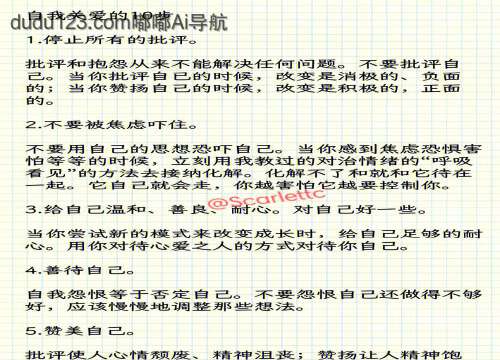 自我关爱的10步
dudu123.com嘟嘟Ai导航
1.停止所有的批评。
批评和抱怨从来不能解决任何问题。不要批评自
己。当你批评自己的时候，改变是消极的、负面
的；当你赞扬自己的时候，改变是积极的，正面
的。
2.不要被焦虑吓住。
不要用自己的思想恐吓自己。当你感到焦虑恐惧害
怕等等的时候，立刻用我教过的对治情绪的“呼吸
看见”的方法去接纳化解。化解不了和就和它待在
一起。它自己就会走，你越害怕它越要控制你。
@Scarlettc
3.给自己温和、善良、耐心。对自己好一些。
当你尝试新的模式来改变成长时，给自己足够的耐
心。用你对待心爱之人的方式对待你自己。
4.善待自己。
自我怨恨等于否定自己。不要怨恨自己还做得不够
好，应该慢慢地调整那些想法。
5.赞美自己。
批评使人心情颓废、精神沮丧；赞扬让人精神饱